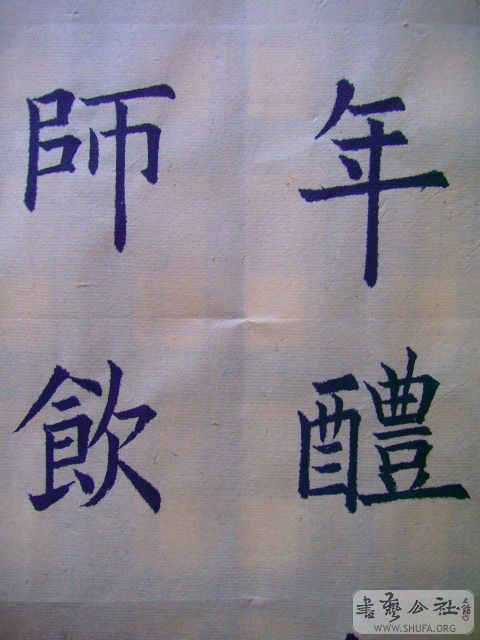 年醴
師飲
書藝公社
WWW.SHUFA.ORG